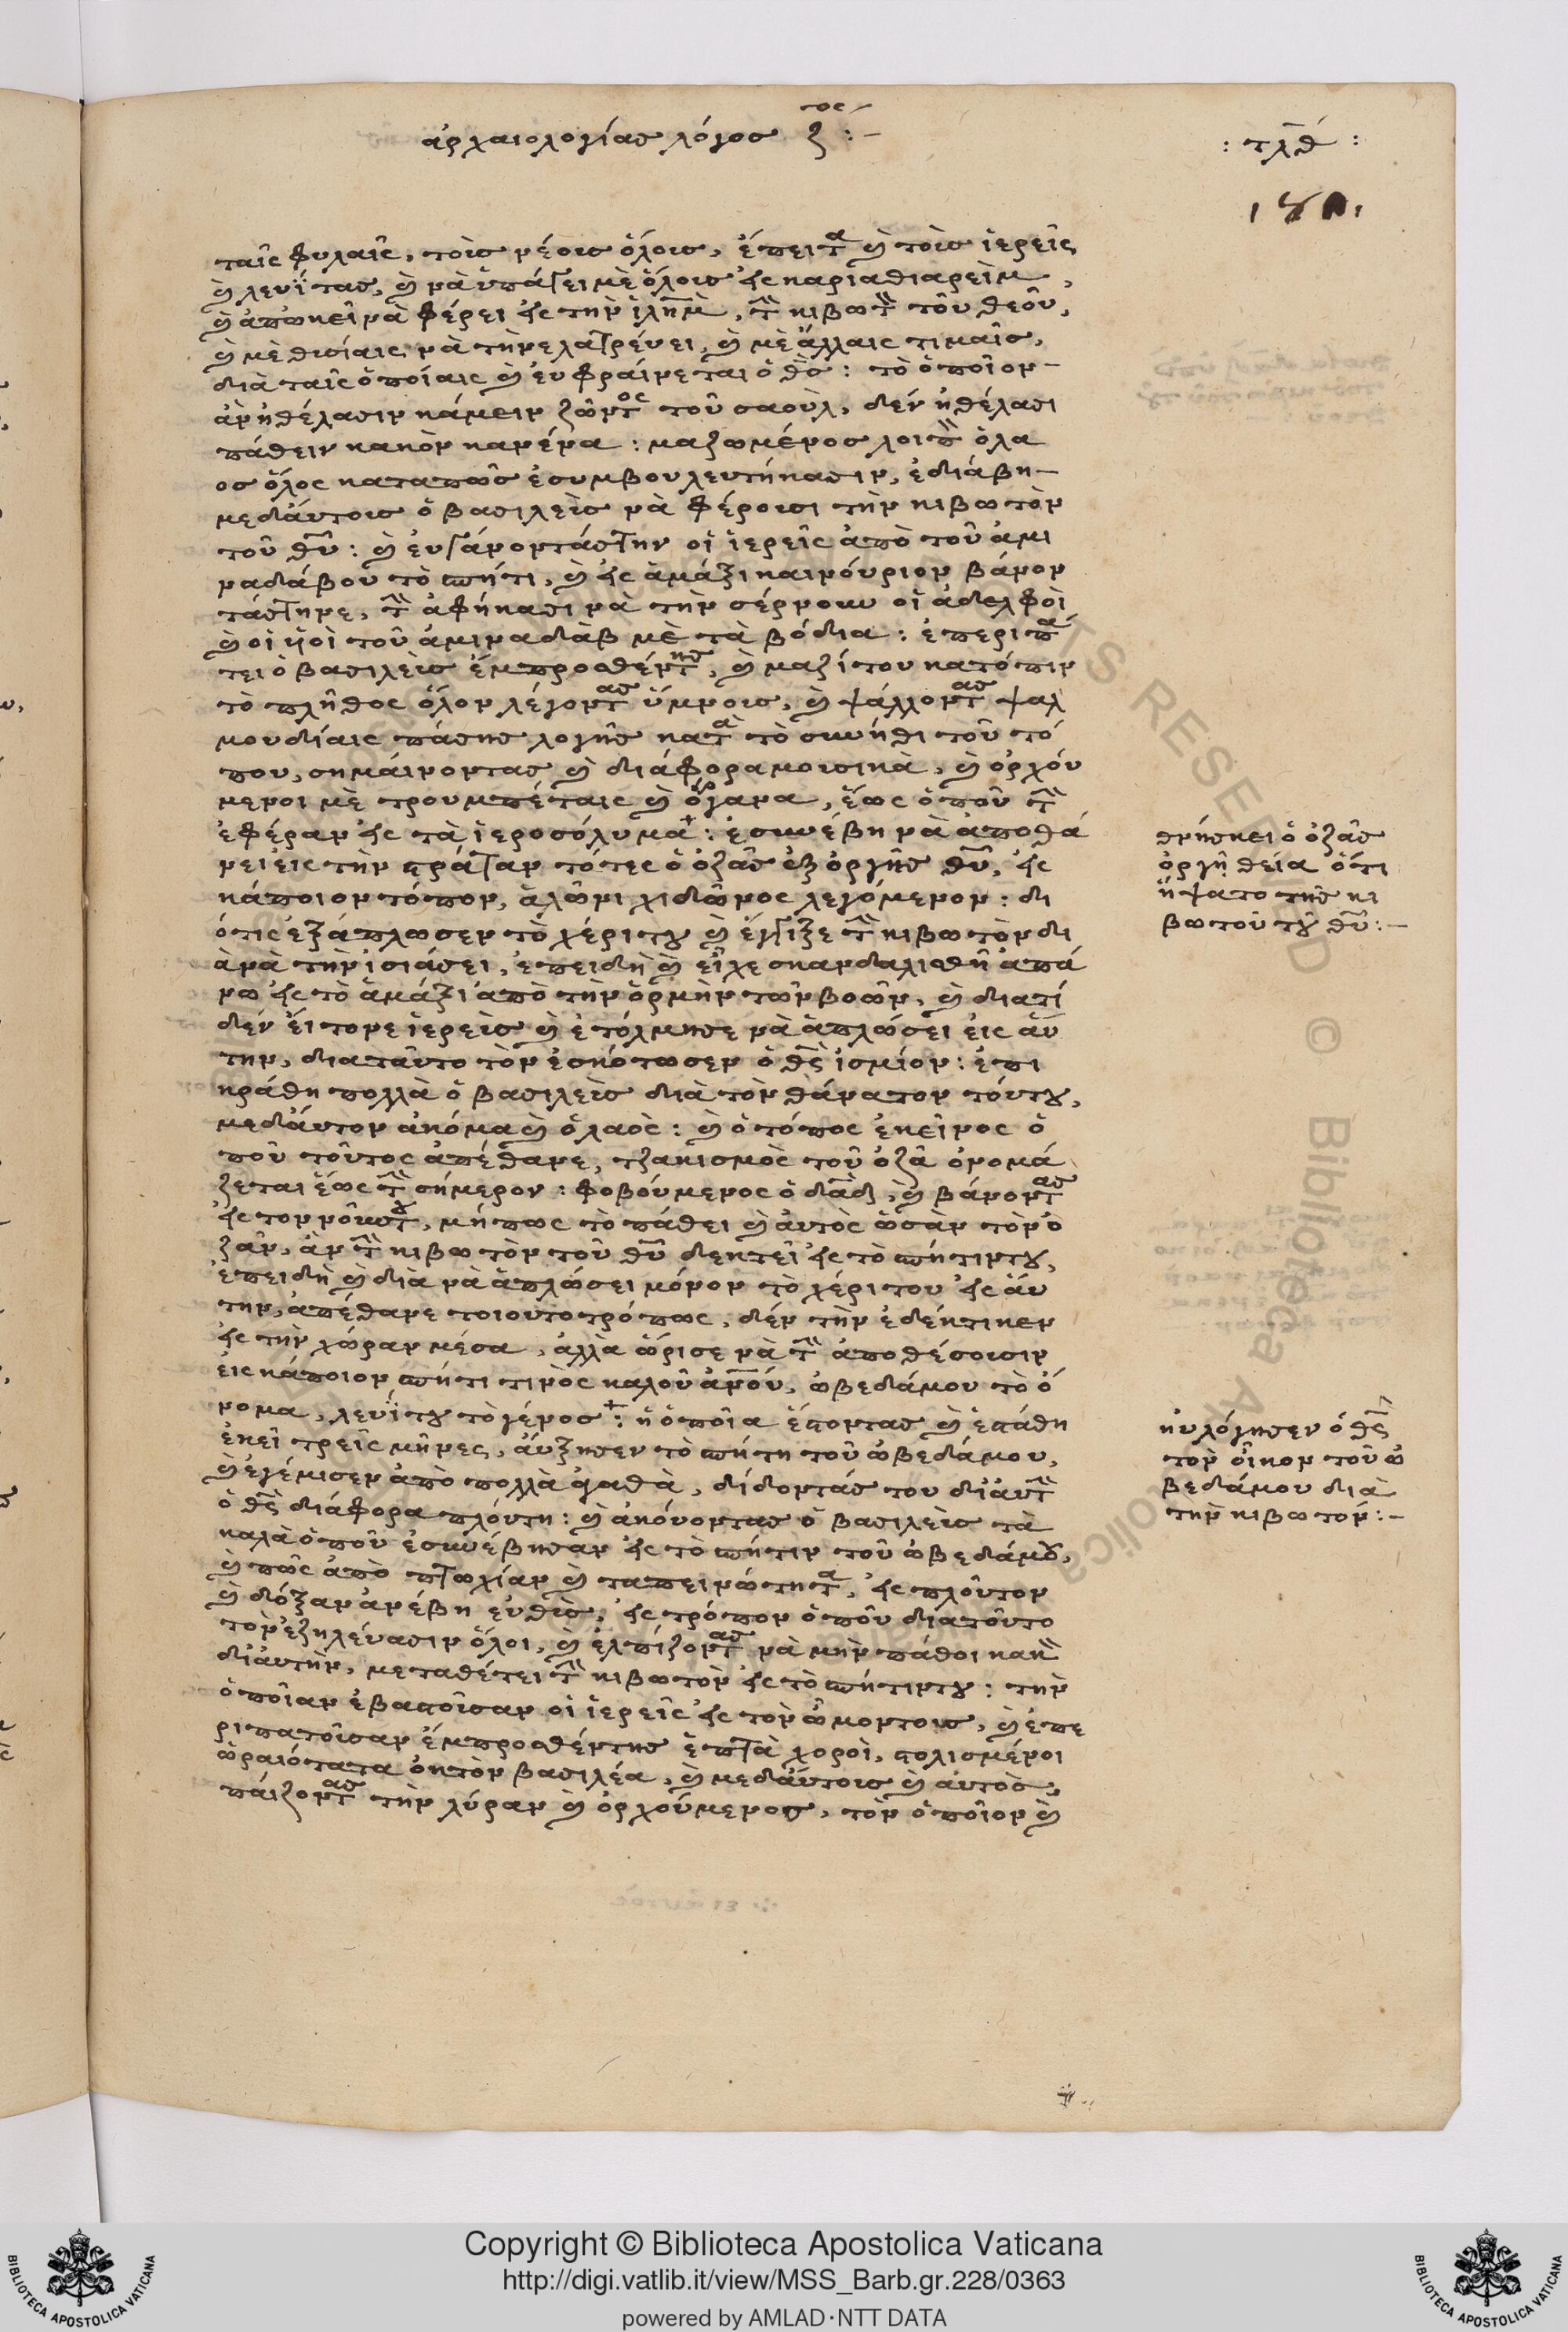 ἀρχαιολογίας λόγος ζ τος :–
: τλθ :
ταῖς φυλαῖς, τοὺς νέους ὅλους, ἔπειτα καὶ τοὺς ἱερεῖς
καὶ λευΐτας, καὶ νὰ ὑπάγει μὲ ὅλους εἰς καριαθιαρεὶμ,
καὶ ἀπωκεῖ νὰ φέρει εἰς τὴν ἱλημ, τὴν κιβωτὸν τοῦ θεοῦ,
καὶ μὲ θυσίαις νὰ τὴν ελατρεύει, καὶ μὲ ἄλλαις τιμαῖς,
διὰ ταῖς ὁποίαις καὶ εὐφραίνεται ὁ θς: τὸ ὁποῖον –
ἀν ἠθέλασιν κάμειν ζῶντος τοῦ σαοὺλ, δὲν ἠθέλασι
πάθειν κακὸν κανένα: μαζωμένος λοιπὸν ὁ λα
ος ὅλος καταπῶς ἐσυμβουλευτήκασιν, ἐδιάβη –
μεδαύτους ὁ βασιλεὺς νὰ φέρουσι τὴν κιβωτὸν
τοῦ θυ: καὶ ευγάνοντάστην οἱ ἱερεῖς ἀπὸ τοῦ ἀμι
ναδάβου τὸ σπήτι, καὶ εἰς ἁμάξι καινούριον βάνον
τάστηνε, τὴν ἀφήκασι νὰ τὴν σέρνουν οἱ ἀδελφοὶ
καὶ οἱ ὑιοὶ τοῦ ἀμιναδὰβ μὲ τὰ βόδια: ἐπεριπά
τει ὁ βασιλεὺς ἔμπροσθέντης, καὶ μαζί του κατόπιν
τὸ πλῆθος ὅλον λέγοντας ὕμνους, καὶ ψάλλοντας ψαλ
μουδίαις πάσης λογῆς κατὰ τὸ συνήθι τοῦ τό
που, σημαίνοντας καὶ διάφορα μουσικὰ, καὶ ὀρχόυ
μενοι μὲ τρουμπέταις καὶ ὄργανα, ἕως ὁποῦ τὴν
ἐφέραν εἰς τὰ ἱεροσόλυμα: ἐσυνέβη νὰ ἀποθά
νει εἰς τὴν στράταν τότες ὁ ὀζᾶς ἐξ ὀργῆς θυ, εἰς
κάποιον τόπον, ἁλῶνι χιδῶνος λεγόμενον: δι
ότις ἐξάπλωσεν τὸ χέριτου καὶ ἔγγιξε τὴν κιβωτὸν δι
ὰ νὰ τὴν ἰσιάσει, ἐπειδὴ καὶ εἶχε σκανδαλισθῆ ἀπά
νω εἰς τὸ ἁμάξι ἀπὸ τὴν ὁρμὴν τῶν βοῶν, καὶ διατί
δὲν εἴτονε ἱερεὺς καὶ ἐτόλμησε νὰ ἁπλώσει εἰς αὐ
την, διαταῦτο τὸν ἐσκότωσεν ὁ θς ἰσμίον: ἐπι
κράθη πολλὰ ὁ βασιλεὺς διὰ τὸν θάνατον τόυτου,
μεδαύτον ἀκόμα καὶ ὁ λαὸς: καὶ ὁ τόπος ἐκεῖνος ὁ
ποῦ τοῦτος ἀπέθανε, τζακισμὸς τοῦ ὀζᾶ ὀνομά
ζεται ἕως τὴν σήμερον: φοβούμενος ὁ δαδ, καὶ βάνοντας
εἰς τον νοῦντου, μήπως τὸ πάθει καὶ ἀυτὸς ὡσὰν τὸν ὀ
ζαν, ἀν τὴν κιβωτὸν τοῦ θυ δεκτεῖ εἰς τὸ σπήτιντου,
ἐπειδὴ καὶ διὰ νὰ ἁπλώσει μόνον τὸ χέρι του εἰς ἀυ
την, ἀπέθανε τοιουτοτρόπως, δὲν τὴν ἐδέκτικεν
εἰς τὴν χώραν μέσα, ἀλλὰ ὥρισε νὰ τὴν ἀποθέσουσιν
εἰς κάποιον σπήτι τινὸς καλοῦ ἀνου, ὠβεδάμου τὸ ὄ
νομα, λευΐτου τὸ γένος: ἡ ὁποῖα ἔστοντας καὶ ἐστάθη
ἐκεῖ τρεῖς μῆνες, ἄυξησεν τὸ σπήτη τοῦ ὠβεδάμου,
καὶ ἐγέμισεν ἀπὸ πολλὰ ἀγαθὰ, δίδοντάς του διαὐτὴν
ὁ θς διάφορα πλόυτη: καὶ ἀκόυοντας ὁ βασιλεὺς τὰ
καλὰ ὁποῦ ἐσυνέβησαν εἰς τὸ σπήτιν τοῦ ὠβεδάμου,
καὶ πῶς ἀπὸ πτωχίαν καὶ ταπεινώτητα, εἰς πλοῦτον
καὶ δόξαν ἀνέβη εὐθὺς, εἰς τρόπον ὁποῦ διατοῦτο
τὸν ἐζηλεύασιν ὅλοι, καὶ ἐλπίζοντας νὰ μὴν πάθοι κακὸν
διαὐτὴν, μεταθέτει τὴν κιβωτὸν εἰς τὸ σπήτιντου: τὴν
ὁποῖαν ἐβαστοῦσαν οἱ ἱερεῖς εἰς τὸν ὦμοντους, καὶ ἐπε
ριπατοῦσαν ἔμπροσθέντης ἑπτὰ χοροὶ, στολισμένοι
ὡραιότατα ἀπὸ τὸν βασιλέα, καὶ μεδαύτους καὶ ἀυτὸς,
πάιζοντας τὴν λύραν καὶ ὀρχούμενος, τὸν ὁποῖον καὶ
θνήσκει ὁ ὀζᾶς
ὀργῆ θεία ὅτι
ἥψατο τῆς κι
βωτοῦ τοῦ θυ:–
ηὐλόγησεν ὁ θς
τὸν οἶκον τοῦ ὠ
βεδάμου διὰ
τὴν κιβωτόν:–
BIBLIOTECA APOSTOLICA VATICANA
Copyright © Biblioteca Apostolica Vaticana
http://digi.vatlib.it/view/MSS_Barb.gr.228/0363
powered by AMLAD·NTT DATA
BIBLIOTECA APOSTOLICA VATICANA